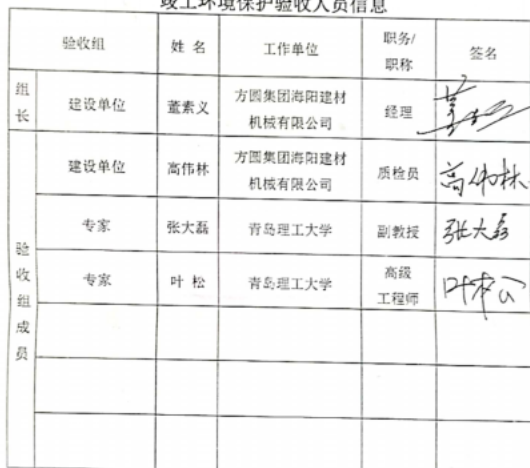 竣工环境保护验收人员信息
验收组 姓 名 工作单位 职务/职称 签名
组长 建设单位 董素义 方圆集团海阳建材机械有限公司 经理 董
验收组成员 建设单位 高伟林 方圆集团海阳建材机械有限公司 质检员 高伟林
专家 张大磊 青岛理工大学 副教授 张大磊
专家 叶 松 青岛理工大学 高级工程师 叶松